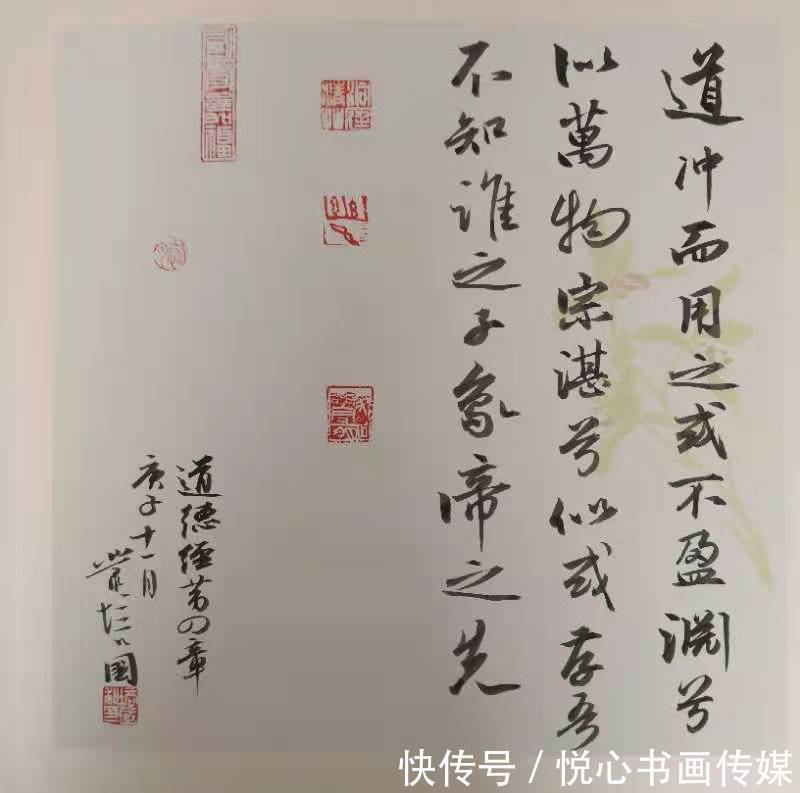 道冲而用之或不盈渊兮
似萬物宗湛兮似或存吾
不知谁之子象谛之先
道德经第四章
庚子十一月
快传号 / 悦心书画传媒